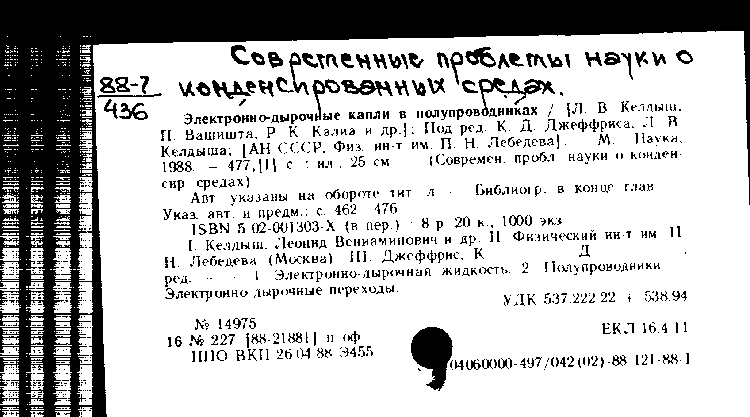 Современные проблемы науки о
88-7 конденсированных средах.
436
Электронно-дырочные капли в полупроводниках / [Л. В. Келдыш,
П. Вашишта, Р. К. Калиа и др.]; Под ред. К. Д. Джеффриса, Л. В.
Келдыша; [АН СССР, Физ. ин-т им. П. Н. Лебедева]. М. Наука,
1988. — 477,[1] с. : ил. ; 25 см (Современ. пробл. науки о конден-
сир. средах)
Авт. указаны на обороте тит. л. - Библиогр. в конце глав
Указ. авт. и предм.: с. 462 476
ISBN 5-02-001303-X (в пер.) : 8 р. 20 к., 1000 экз
I. Келдыш, Леонид Вениаминович и др. II Физический ин-т им П
Н. Лебедева (Москва) III. Джеффрис, К Д
ред. - - 1 Электронно-дырочная жидкость. 2 Полупроводники
Электронно дырочные переходы.
УДК 537.222.22 + 538.94
№ 14975
16 № 227 [88-21881] п оф ЕКЛ 16.4 11
НПО ВКП 26 04 88 Э455
04060000-497/042(02)-88 121-88-1